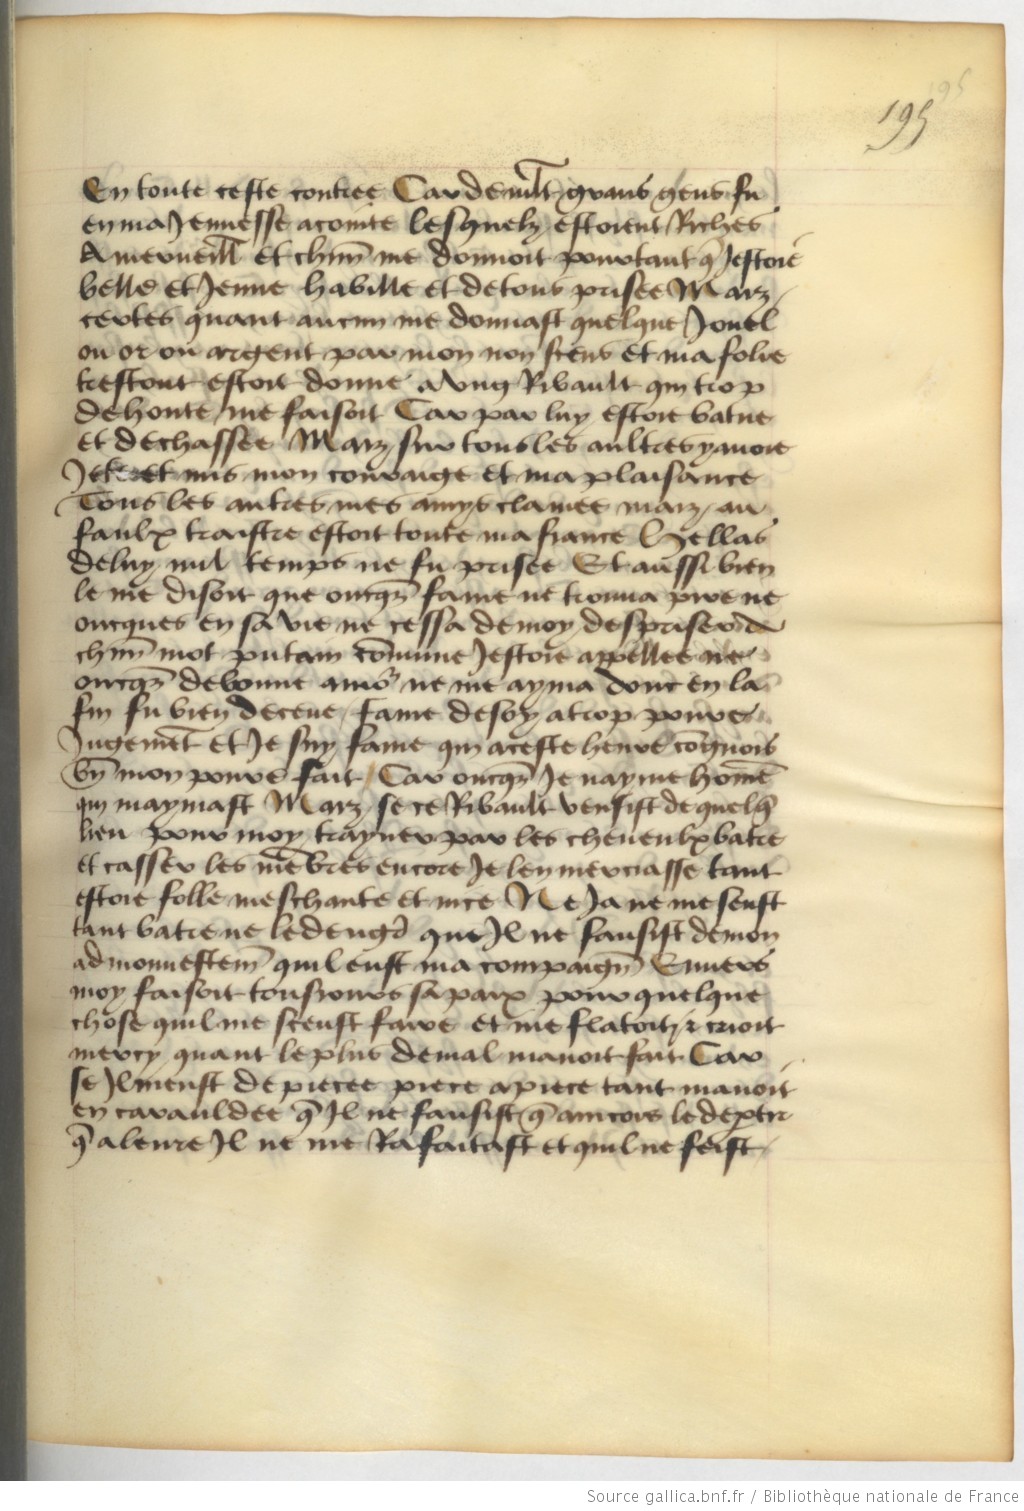 195
195
En toute ceste contree Car de mlt grans gens fu
en ma Jennesse acointe lesquelz estoient Riches
A merveill Et chun me donnoit pourtant q Jestoie
belle et Jenne habille et de tous prisee Maiz
certes quant aucun me donnast quelque Jouel
ou or ou argent par mon non scens et ma folie
trestout estoit donne a Ung Ribault qui trop
de honte me faisoit Car par luy estoie batue
et dechassee Maiz sur tous les aultres y avoie
et mis mon couraige et ma plaisance
Tous les autres mes amys clamee maiz au
faulx traistre estoit toute ma fiance Hellas
de luy nul temps ne fu prisee Et aussi bien
le me disoit que oncqz fame ne trouva pire ne
oncques en sa vie ne cessa de moy despriser de
chun mot putain comune Jestoie appellee ne
oncqz de bonne amor ne me ayma donc en la
fin fu bien deceue / fame de soy a trop povre
Jugemet et Je suy fame qui a ceste heure cognois
bn mon povre fait / Car oncqz Je naymé home
qui maymast Maiz se ce Ribault venist de quelq
lieu pour moy trayner par les cheveulx batre
et casser les mebres encore Je len merciasse tant
estoie folle meschante et nice Ne Ja ne me seust
tant batre ne ledenger que Il ne fausist de mon
admonnestem quil eust ma compaign Envers
moy faisoit tousjours sa paix pour quelque
chose quil me sceust faire et me flatoit / et crioit
mercy quant le plus de mal mavoit fait Car
se Il meust depiecee piece a piece tant mavoit
encarauldee q Il ne fausist / q aincois le deptir
q a leure Il ne me Rafaitast et quil ne feist
Source gallica.bnf.fr / Bibliothèque nationale de France